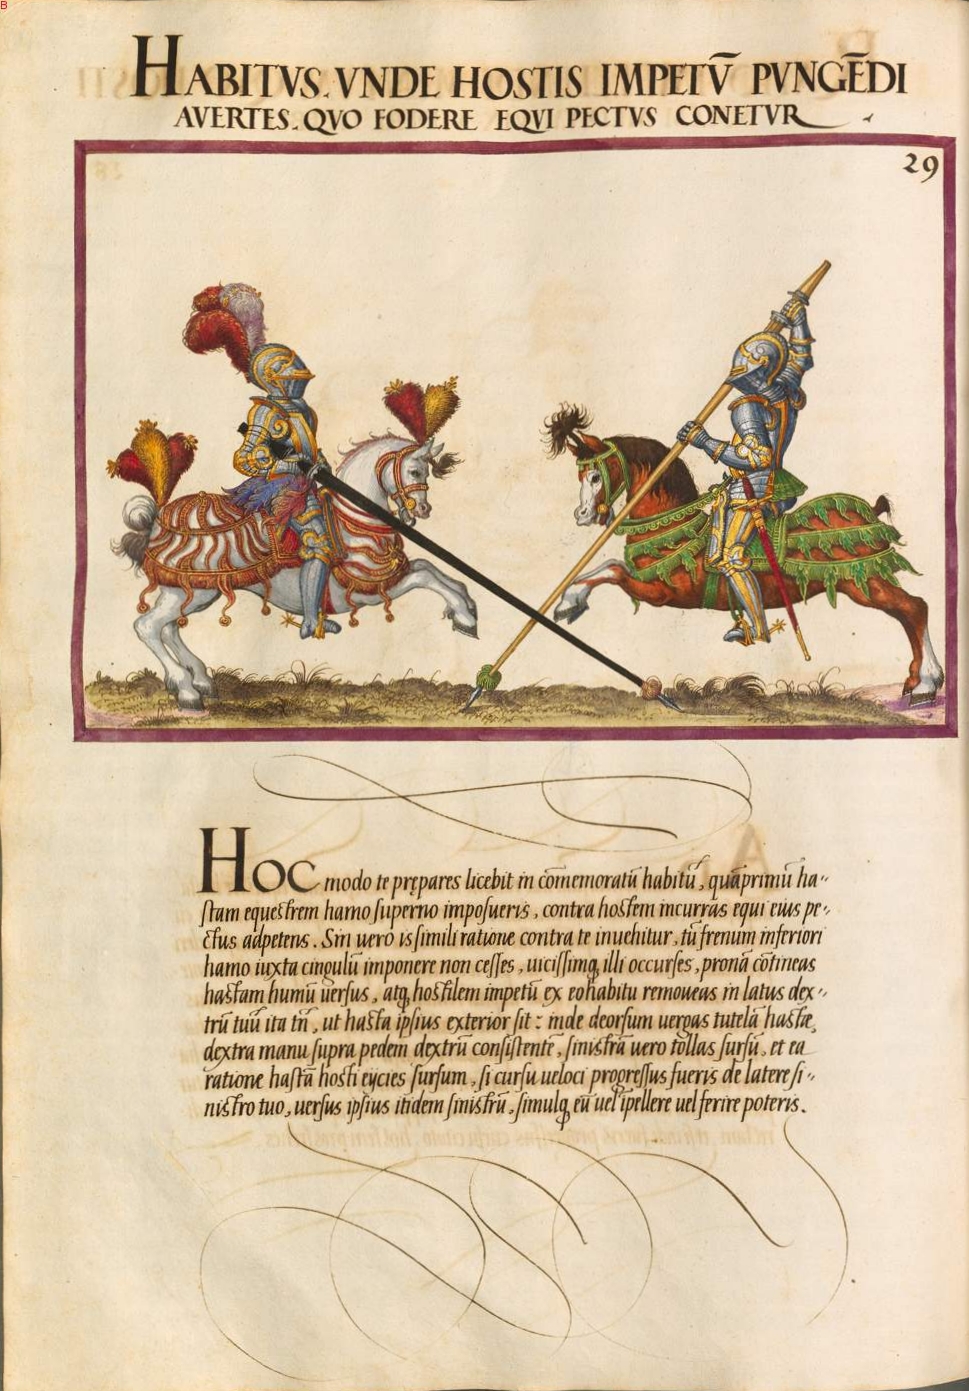 B
HABITVS. VNDE HOSTIS IMPETV̄ PVNGĒDI
AVERTES. QVO FODERE EQVI PECTVS CONETVR
29
HOC modo te prępares licebit in cōmemoratū habitū, quāprimū ha-
ſtam equeſtrem hamo ſuperno impoſueris, contra hoſtem incurras equi eius pe-
ctus adpetens. Sin uero is ſimili ratione contra te inuehitur, tū frenum inferiori
hamo iuxta cingulū imponere non ceſſes, uiciſſimq; illi occurſes, pronā cōtineas
haſtam humū uerſus, atq; hoſtilem impetū ex eo habitu remoueas in latus dex-
trū tuū ita tn̄, ut haſta ipſius exterior ſit: inde deorſum uergas tutelā haſtæ,
dextra manu ſupra pedem dextrū conſiſtente, ſiniſtrā uero tollas ſurſū, et ea
ratione haſtā hoſti eycies ſurſum, ſi curſu ueloci progreſſus fueris de latere ſi-
niſtro tuo, uerſus ipſius itidem ſiniſtrū, ſimulq; eū uel ipellere uel ferire poteris.